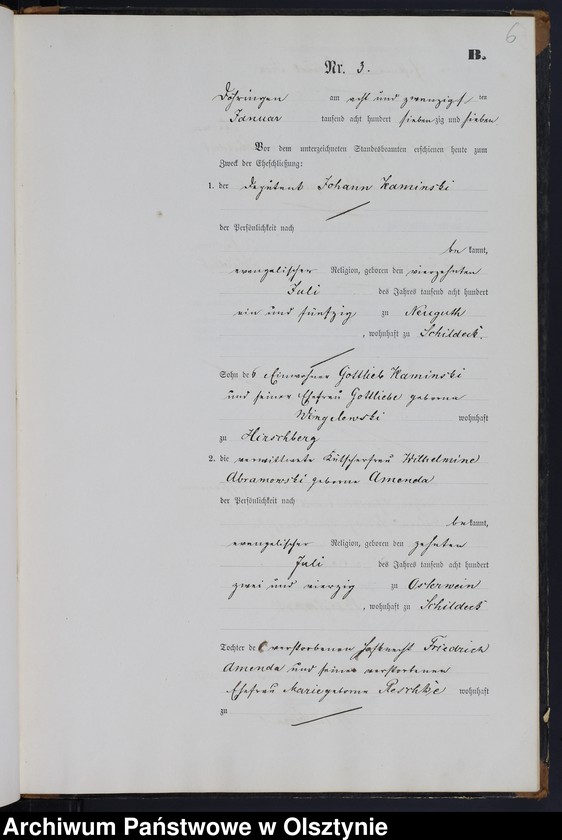 6
B.
Nr. 3.
Döhringen am acht und zwanzigsten
Januar tausend acht hundert siebenzig und sieben
Vor dem unterzeichneten Standesbeamten erschienen heute zum
Zweck der Eheschließung:
1. der Deputant Johann Kaminski
der Persönlichkeit nach
be kannt,
evangelischer Religion, geboren den vierzehnten
Juli des Jahres tausend acht hundert
ein und fünfzig zu Neuguth
, wohnhaft zu Schildeck.
Sohn des Einwohner Gottlieb Kaminski
und seiner Ehefrau Gottliebe geborne
Wingelewski wohnhaft
zu Hirschberg
2. die verwittwete Kutscherfrau Wilhelmine
Abramowski geborne Amenda
der Persönlichkeit nach
be kannt,
evangelischer Religion, geboren den zehnten
Juli des Jahres tausend acht hundert
zwei und vierzig zu Osterwein
, wohnhaft zu Schildeck
Tochter des verstorbenen Friedrich
Amenda und seiner verstorbenen
Ehefrau Marie geborne Reschke wohnhaft
zu
Archiwum Państwowe w Olsztynie